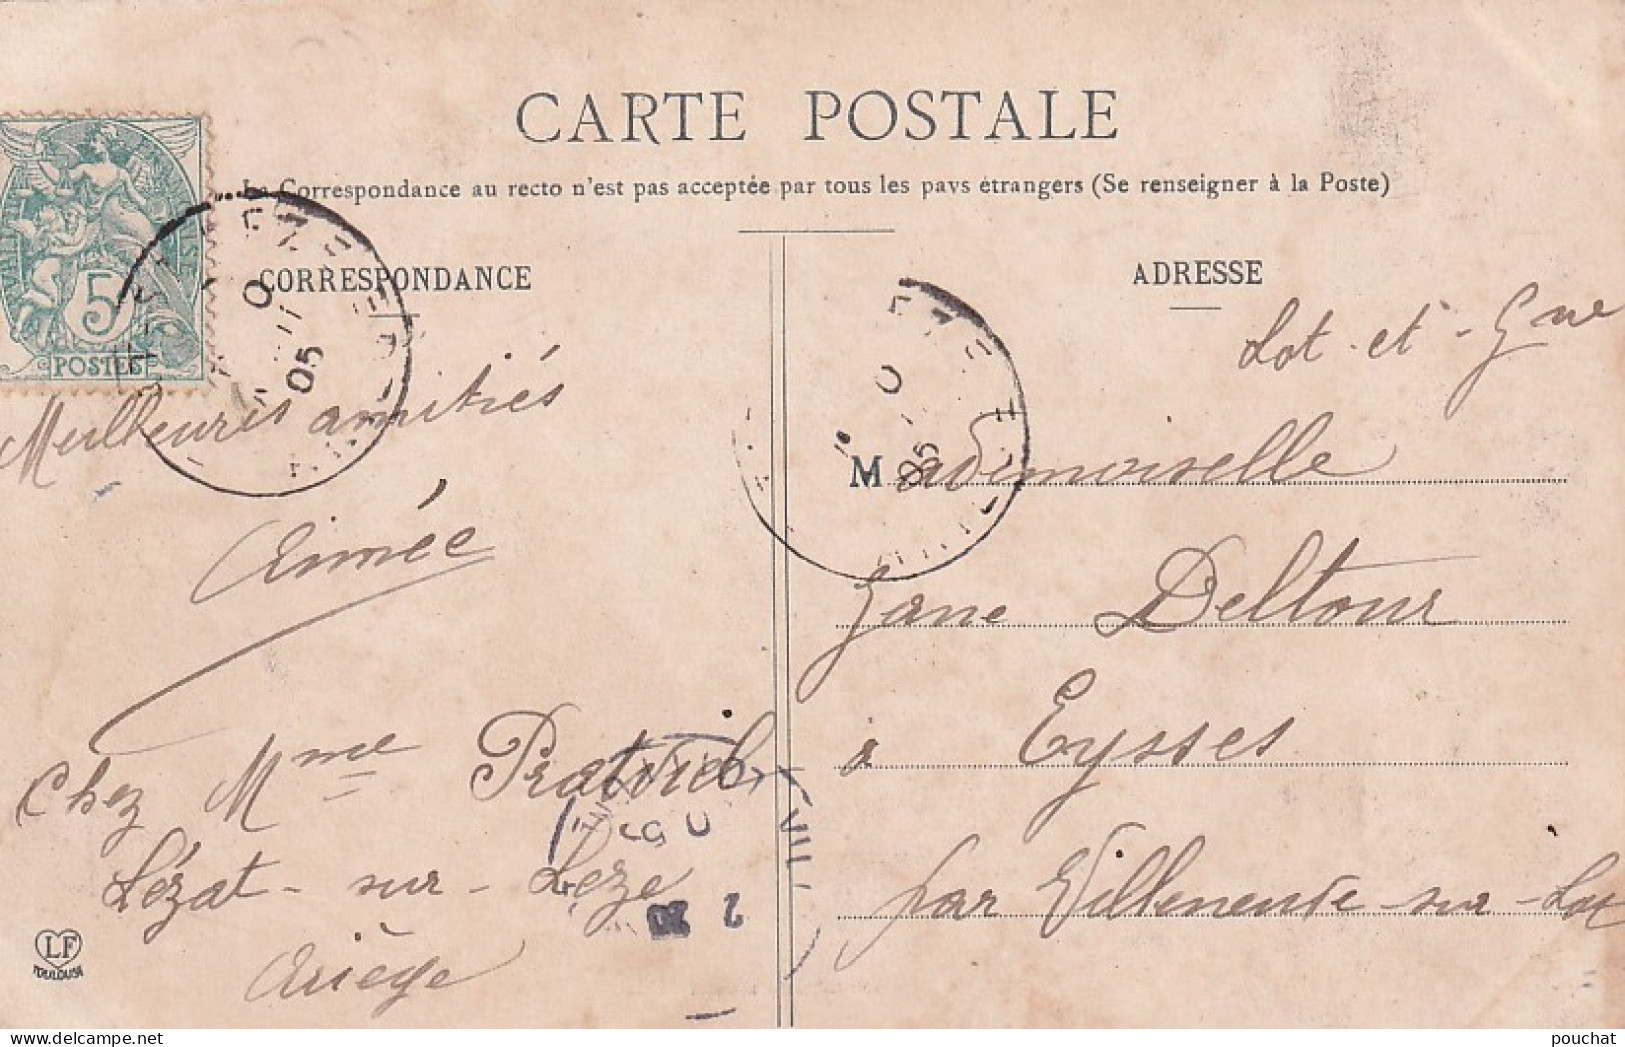 CARTE POSTALE
La Correspondance au recto n'est pas acceptée par tous les pays étrangers (Se renseigner à la Poste)
CORRESPONDANCE
5
POSTES
05
Meilleures amitiés
Aimée
Chez Mme
Lézat-sur-Lèze
Ariège
LF
TOULOUSE
ADRESSE
Lot-et-Gne
05
Mademoiselle
Jane Deltour
à Eysses
par Villeneuve-sur-Lot
pouchat